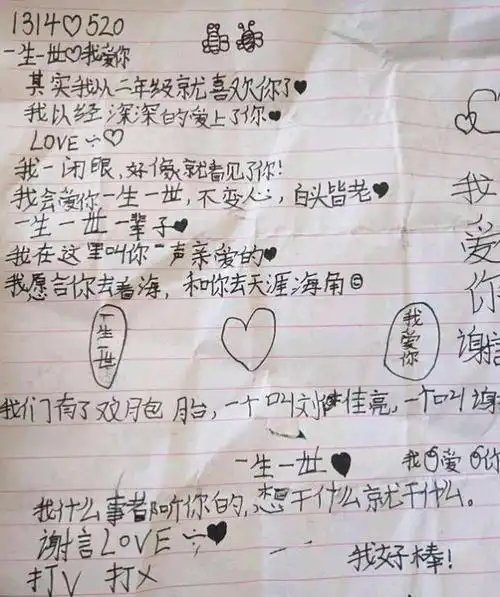 1314♡520
一生一世♡我爱你
其实我从二年级就喜欢你了♥
我以经深深的爱上了你♥
LOVE ÷♡
我一闭眼，好像就看见了你！
我会爱你一生一世，不变心，白头皆老♥
一生一世一辈子♥
我在这里叫你一声亲爱的♥
我愿言你去看海，和你去天涯海角☺
一生一世
♡
我爱你
我们有了双月包月台，一个叫刘佳亮，一个叫谢
一生一世♥
我爱你
我什么事者听你的，想干什么就干什么。
谢言LOVE ÷♥
我好棒！
打V 打X
我
爱
你
谢言